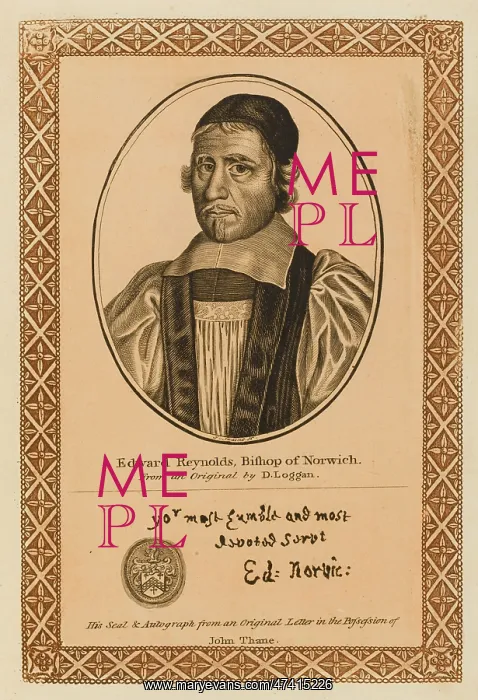 ME
PL
Edward Reynolds, Biſhop of Norwich.
From an Original by D.Loggan.
ME
PL
yoʳ most humble and most
devoted Servt
Ed: Norvic:
His Seal & Autograph from an Original Letter in the Poſseſsion of
John Thane.
www.maryevans.com/47415226